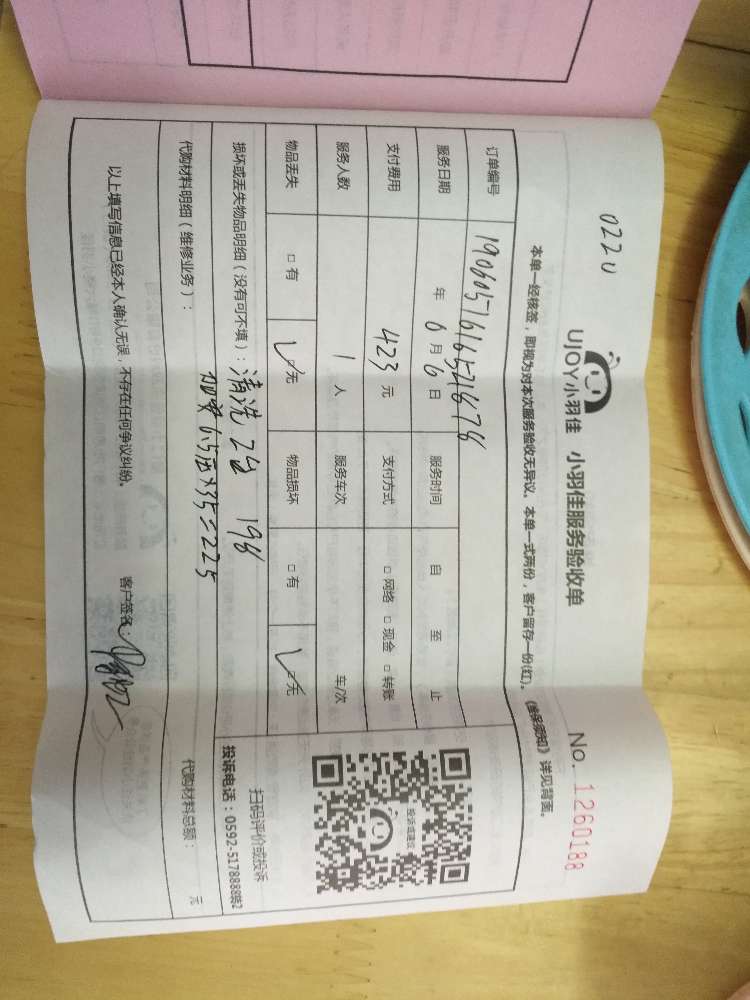 0220
UJOY小羽佳 小羽佳服务验收单
No. 1260188
本单一经核签，即视为对本次服务验收无异议。本单一式两份，客户留存一份(红)。《维保须知》详见背面。
订单编号 1906057616521678
服务日期 年 6 月 6 日 服务时间 自 至 止
支付费用 423 元 支付方式 □ 网络 □ 现金 □ 转账
服务人数 1 人 服务车次 车/次
物品丢失 □ 有 ✓ □ 无 物品损坏 □ 有 ✓ □ 无
投诉或建议
扫码评价或投诉
投诉电话：0592-5178888转2
损坏或丢失物品明细（没有可不填）：清洗 2台 198
代购材料明细（维修业务）：
代购材料总额： 元
以上填写信息已经本人确认无误，不存在任何争议纠纷。
客户签名：